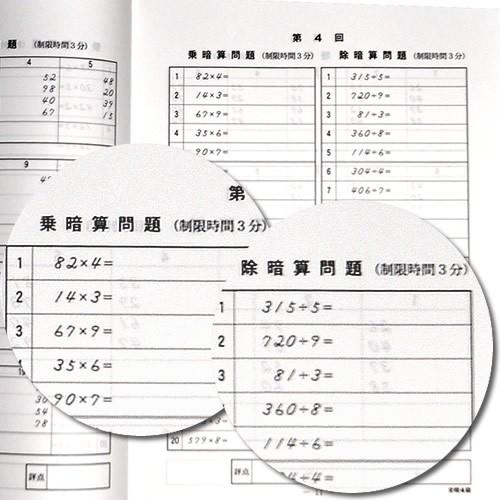 題 （制限時間3分）
4 5
52 48
98 20
40 39
67 15
9
第 4 回
乗暗算問題（制限時間3分）
1 82×4=
2 14×3=
3 67×9=
4 35×6=
5 90×7=
除暗算問題（制限時間3分）
1 315÷5=
2 720÷9=
3 81÷3=
4 360÷8=
5 114÷6=
6 304÷4=
7 406÷7=
第
乗暗算問題（制限時間3分）
1 82×4=
2 14×3=
3 67×9=
35×6=
90×7=
除暗算問題（制限時間3分）
1 315÷5=
2 720÷9=
3 81÷3=
360÷8=
114÷6=
30
54
78
20 579÷8=
評点
評点